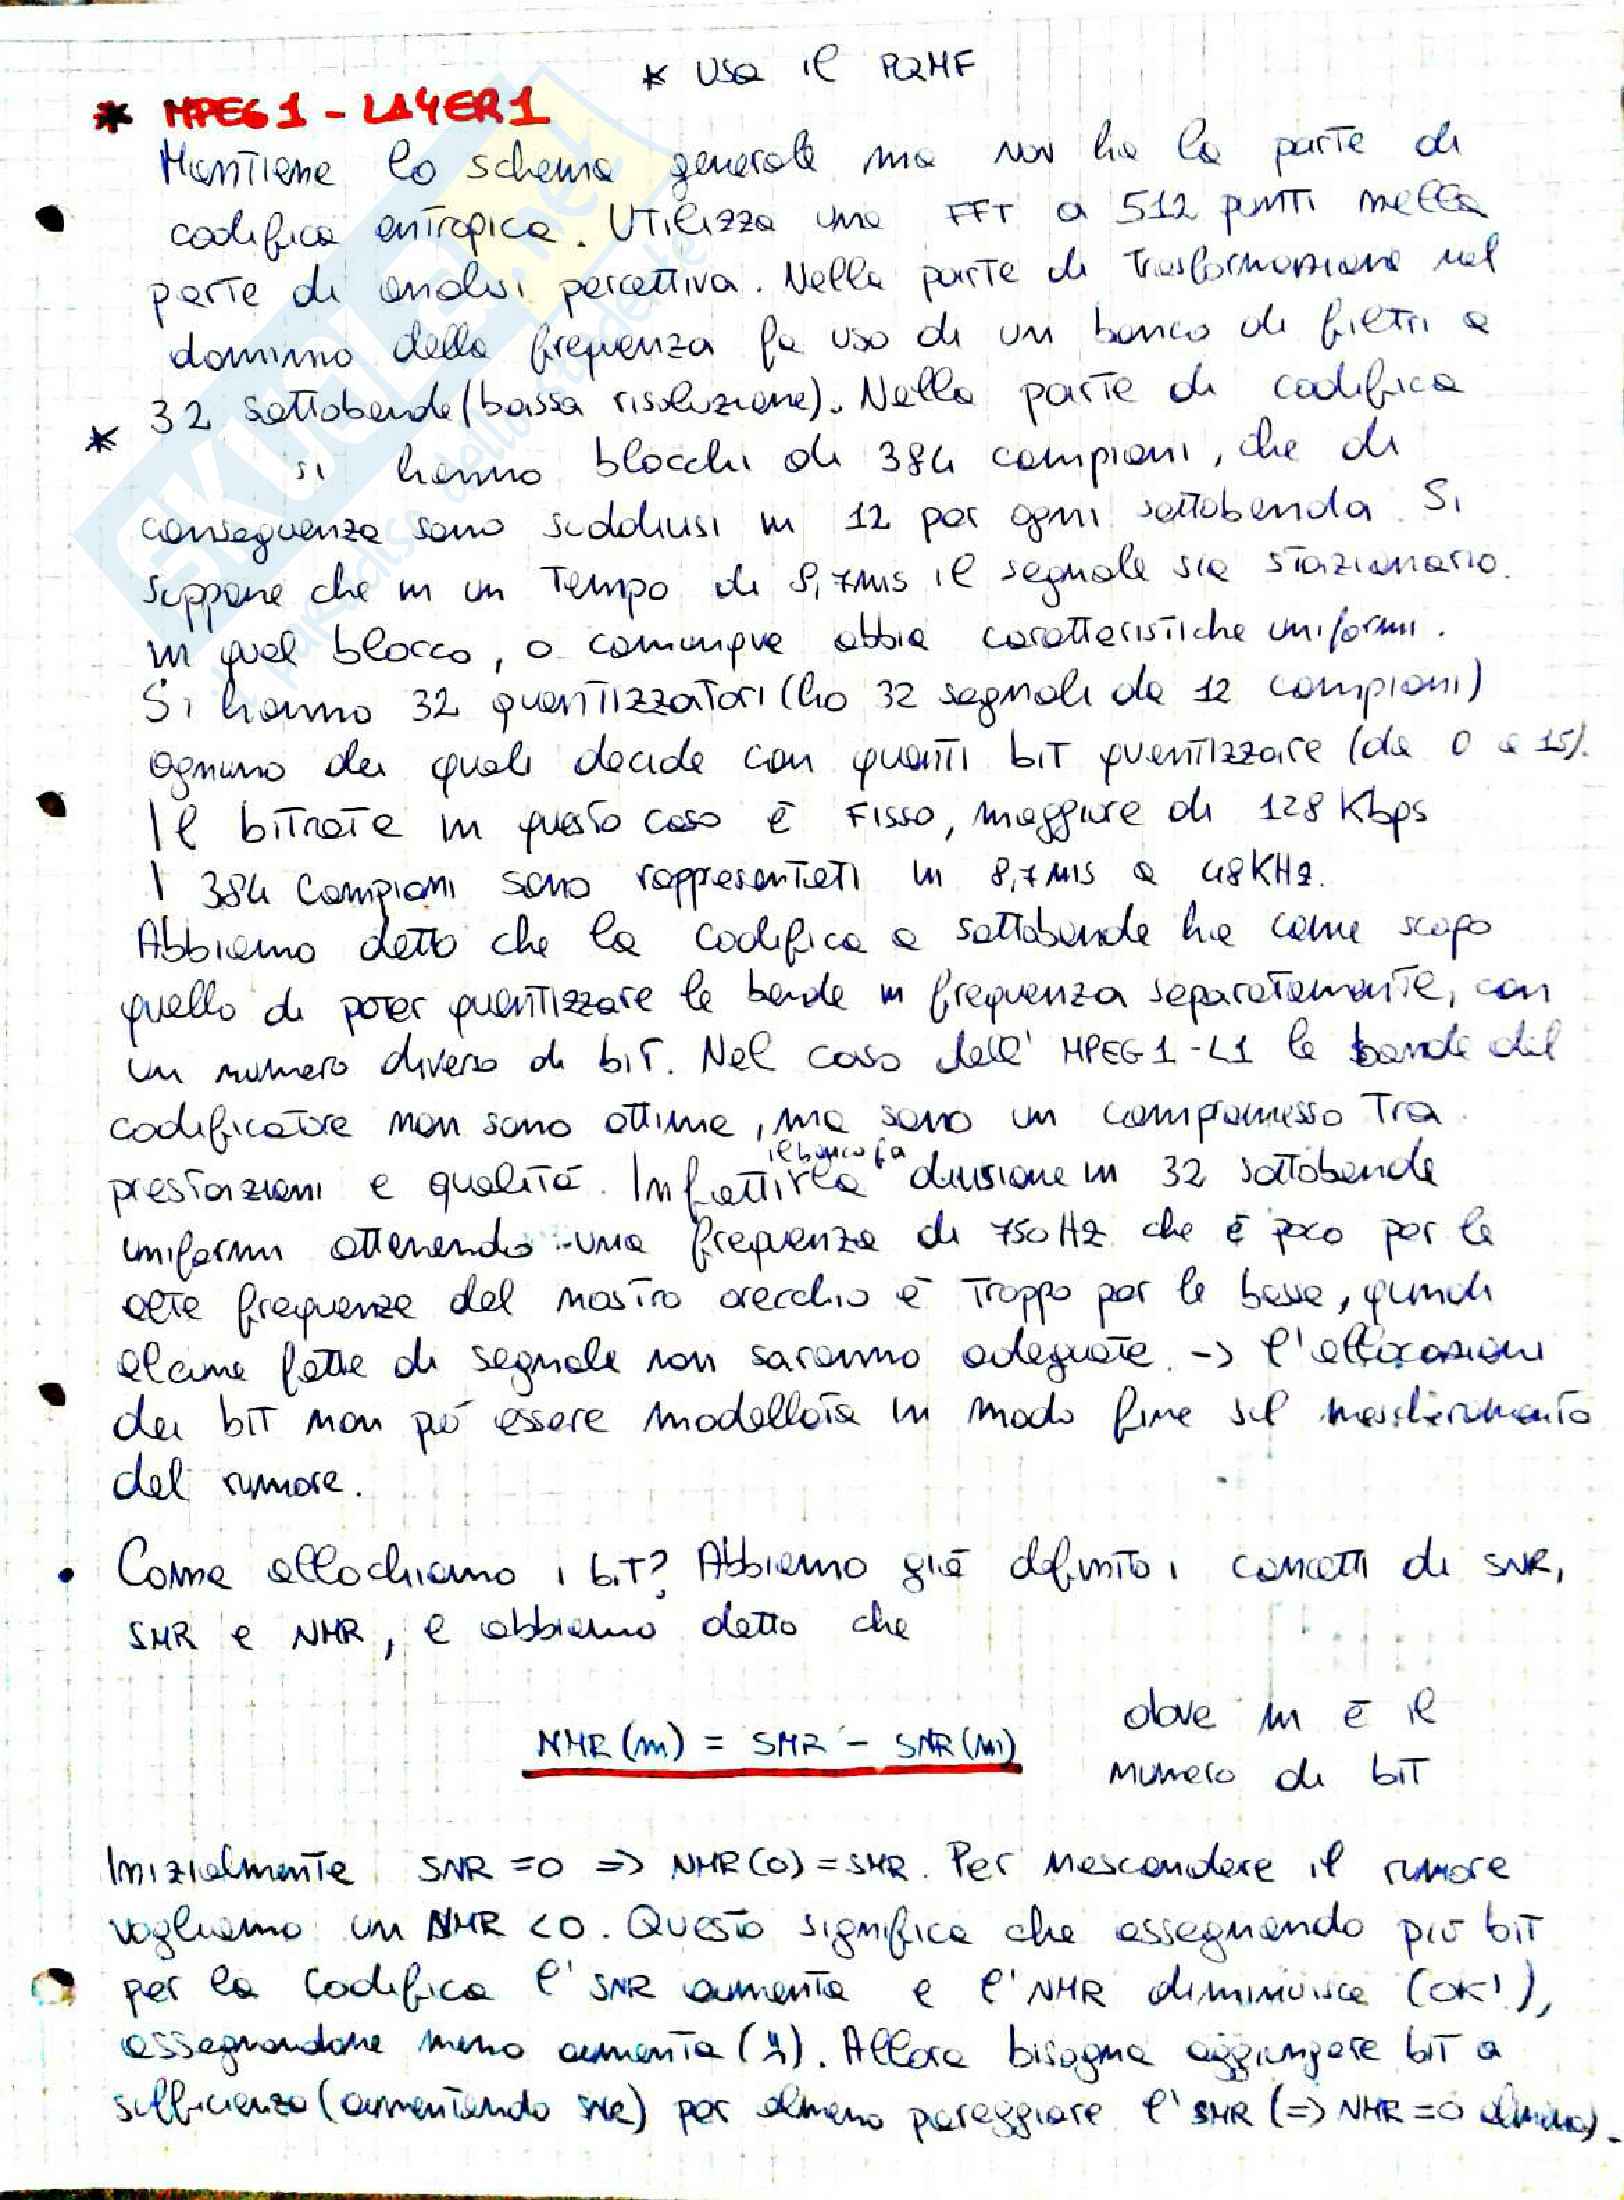 * USA il PQMF
* MPEG1 - LAYER1
Mantiene lo schema generale ma non ha la parte di
codifica entropica. Utilizza una FFT a 512 punti nella
parte di analisi percettiva. Nella parte di trasformazione nel
dominio della frequenza fa uso di un banco di filtri a
32 sottobande (bassa risoluzione). Nella parte di codifica
* si hanno blocchi di 384 campioni, che di
conseguenza sono suddivisi in 12 per ogni sottobanda. Si
suppone che in un tempo di 8,7ms il segnale sia stazionario
in quel blocco, o comunque abbia caratteristiche uniformi.
Si hanno 32 quantizzatori (ho 32 segnali da 12 campioni)
ognuno dei quali decide con quanti bit quantizzare (da 0 a 15).
Il bitrate in questo caso è FISSO, maggiore di 128 Kbps
I 384 campioni sono rappresentati in 8,7ms a 48KHz.
Abbiamo detto che la codifica a sottobande ha come scopo
quello di poter quantizzare le bande in frequenza separatamente, con
un numero diverso di bit. Nel caso dell' MPEG1-L1 le bande del
codificatore non sono ottime, ma sono un compromesso tra
prestazioni e qualità. Infatti il banco fa la divisione in 32 sottobande
uniformi ottenendo una frequenza di 750Hz che è poco per le
alte frequenze del nostro orecchio e troppo per le basse, quindi
alcune fette di segnale non saranno adeguate. -> l'allocazione
dei bit non può essere modellata in modo fine sul mascheramento
del rumore.
• Come allochiamo i bit? Abbiamo già definito i concetti di SNR,
SMR e NMR, e abbiamo detto che
NMR(m) = SMR - SNR(m)
dove m è il
numero di bit
Inizialmente SNR = 0 => NMR(0) = SMR. Per nascondere il rumore
vogliamo un NMR < 0. Questo significa che assegnando più bit
per la codifica l'SNR aumenta e l'NMR diminuisce (OK!),
assegnandone meno aumenta. Allora bisogna aggiungere bit a
sufficienza (aumentando SNR) per almeno pareggiare l'SMR (=> NMR = 0 almeno).
SKUOLA.net
il paradiso dello studente